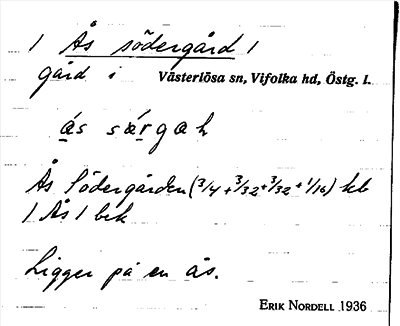 / Ås södergård /
gård i Västerlösa sn, Vifolka hd, Östg. l.
ás sárgaḥ
Ås Södergården (3/4 + 3/32 + 3/32 + 1/16) kb
/ Ås / bek
Ligger på en ås.
ERIK NORDELL 1936